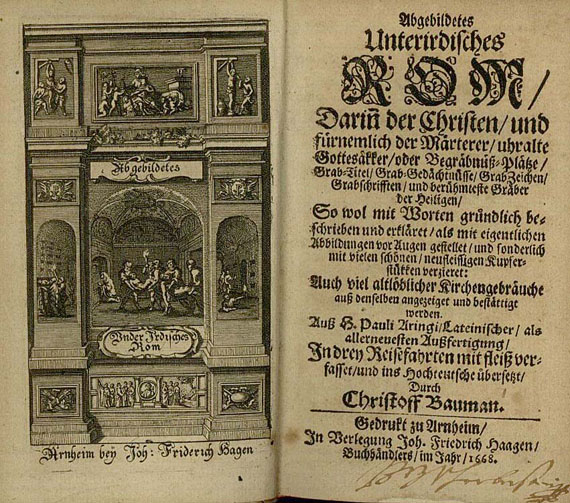 Abgebildetes
Vnder Irdisches
Rom
Arnheim bey Joh: Friderich Hagen
Abgebildetes
Unterirdisches
ROM/
Dariñ der Christen/ und
fürnemlich der Märterer/ uhralte
Gottesäkker/ oder Begräbniß-Plätze/
Grab-Titel/ Grab-Gedächtnüsse/ Grab Zeichen/
Grabschrifften/ und berühmteste Gräber
der Heiligen/
So wol mit Worten gründlich be-
schrieben und erkläret/ als mit eigentlichen
Abbildungen vor Augen gestellet/ und sonderlich
mit vielen schönen/ neufleissigen Kupfer-
stükken verzieret:
Auch viel altlöblicher Kirchengebräuche
auß denselben angezeiget und bestättigt
werden.
Auß H. Pauli Aringi/ Lateinischer/ als
allerneuesten Außfertigung/
In drey Reisefahrten mit fleiß ver-
fasset/ und ins Hochteutsche übersetzt/
Durch
Christoff Bauman.
Gedrukt zu Arnheim/
In Verlegung Joh. Friedrich Haagen/
Buchhändlers/ im Jahr/ 1668.